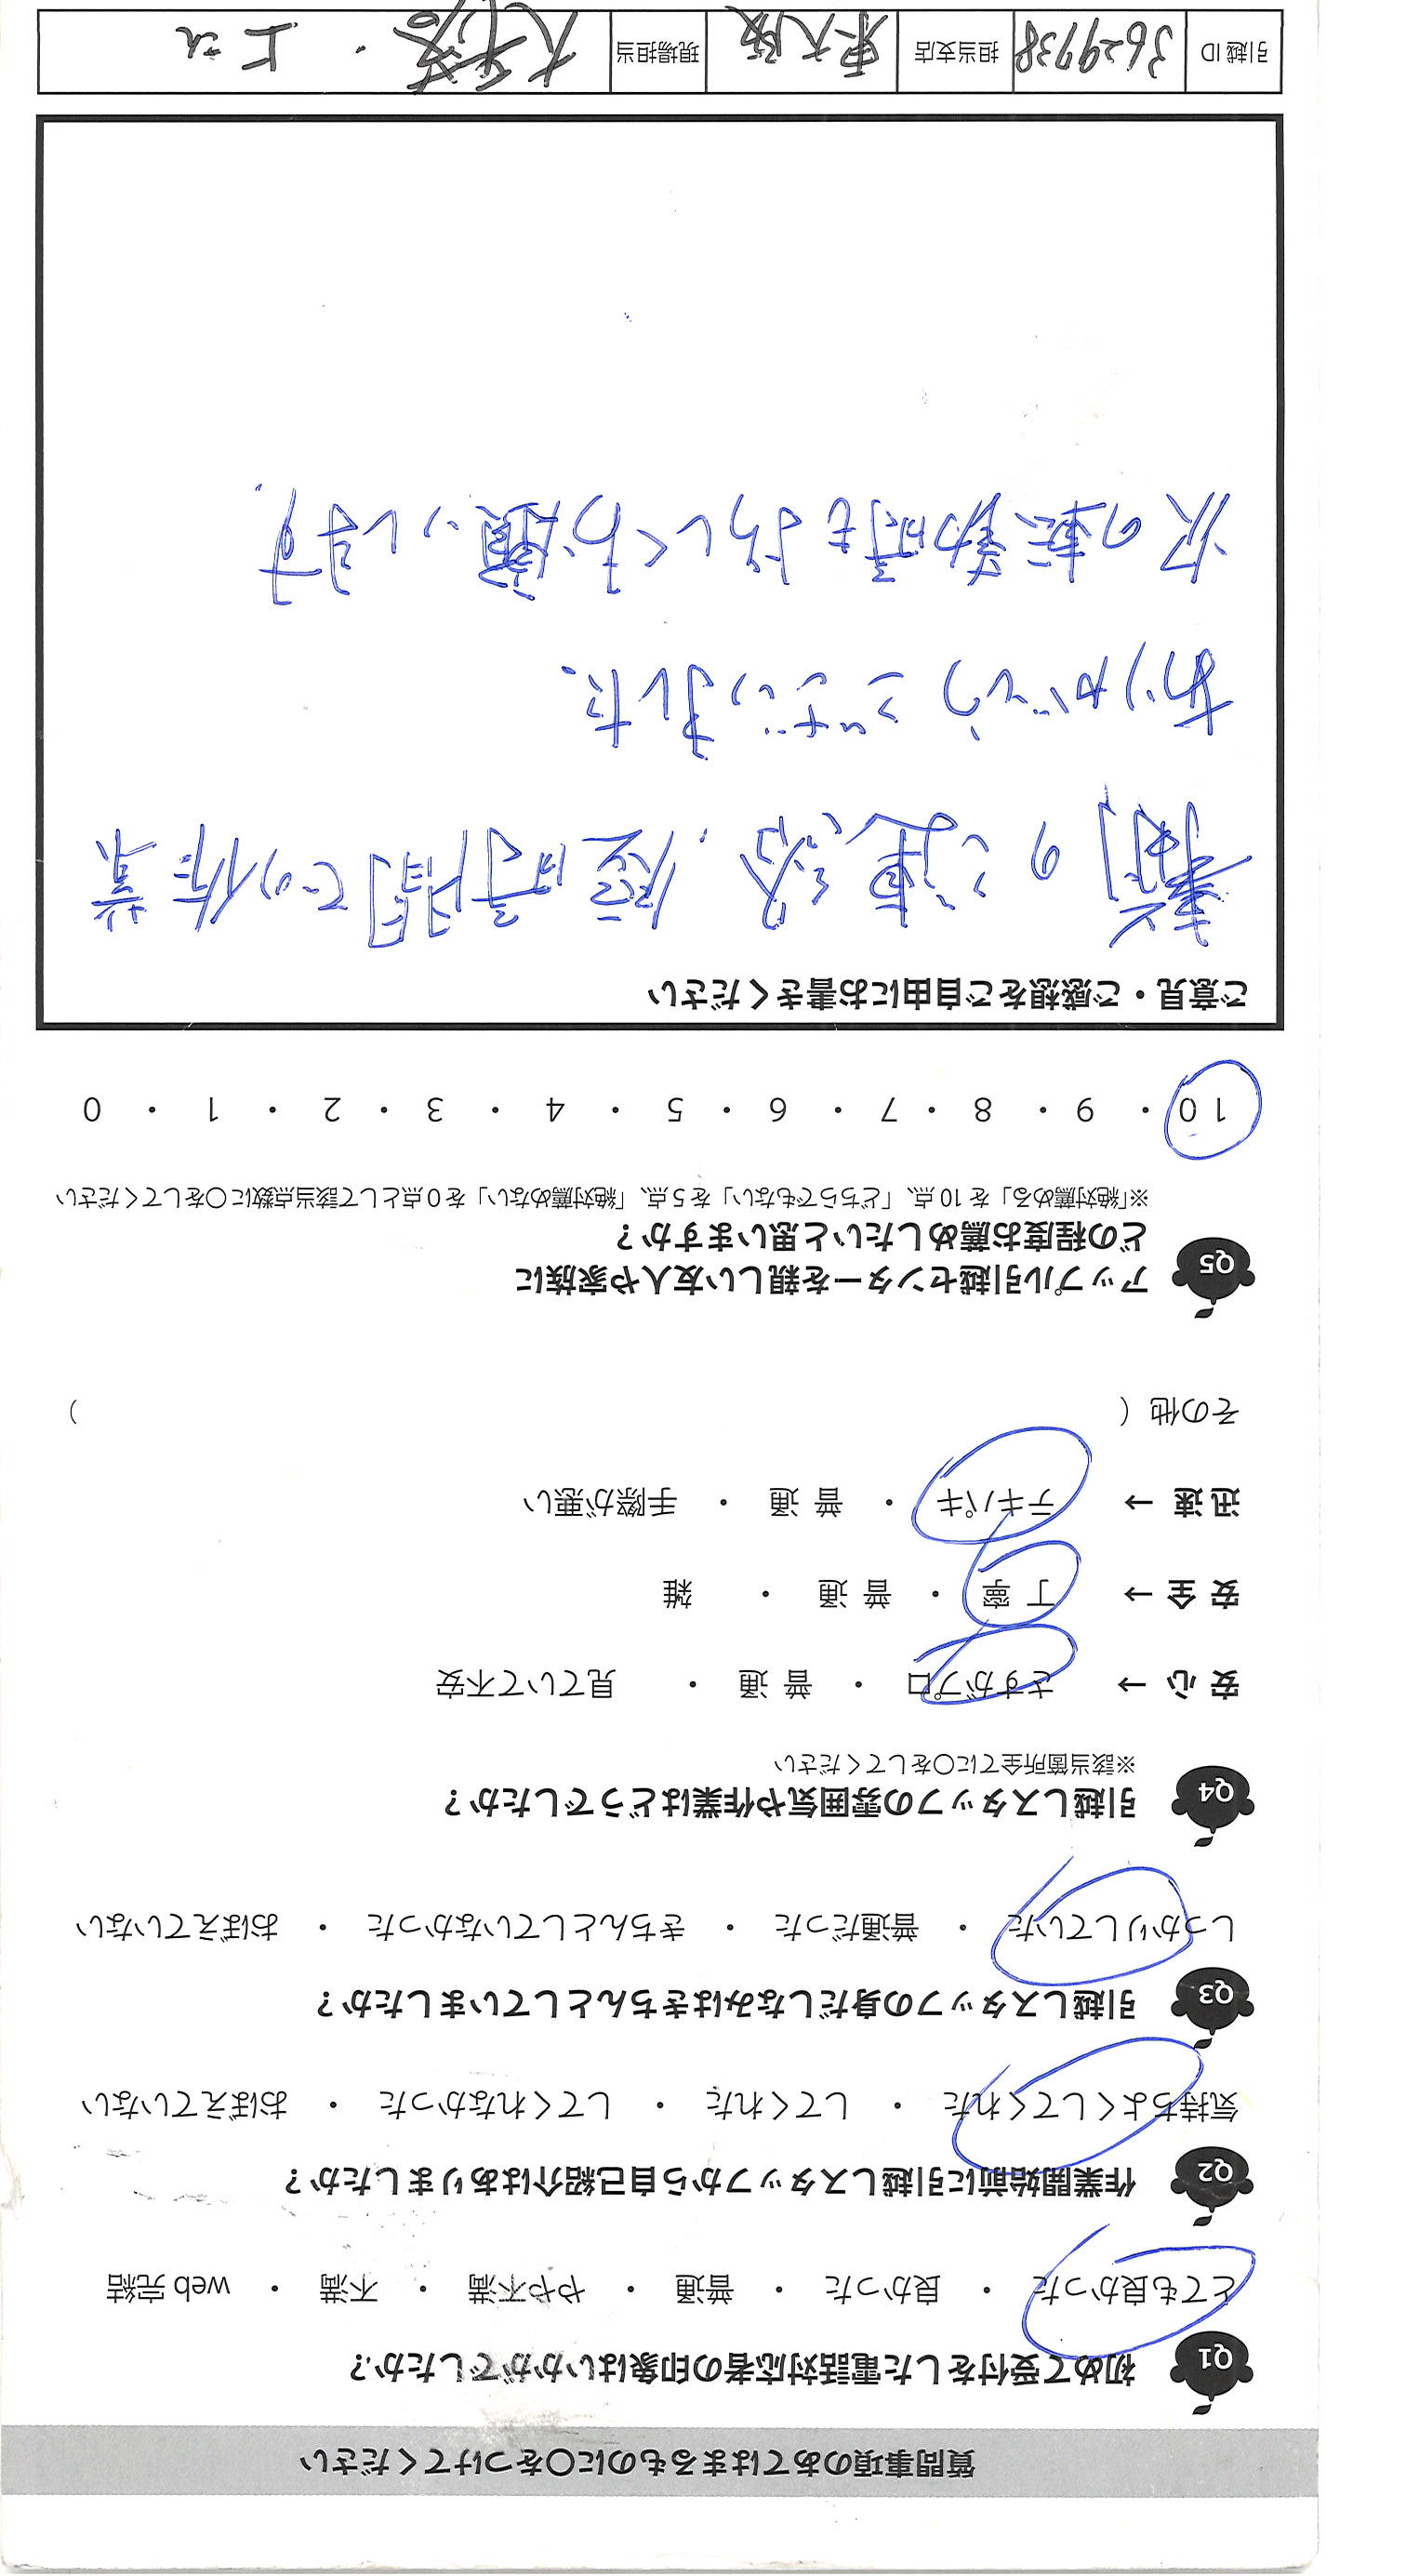 質問事項のあてはまるものに○をつけてください
Q1 初めて受付をした電話対応者の印象はいかがでしたか?
とても良かった ・ 良かった ・ 普通 ・ やや不満 ・ 不満 ・ web 完結
Q2 作業開始前に引越しスタッフから自己紹介はありましたか?
気持ちよくしてくれた ・ してくれた ・ してくれなかった ・ おぼえていない
Q3 引越しスタッフの身だしなみはきちんとしていましたか?
しっかりしていた ・ 普通だった ・ きちんとしていなかった ・ おぼえていない
Q4 引越しスタッフの雰囲気や作業はどうでしたか?
※該当箇所全てに○をしてください
安心 → さすがプロ ・ 普通 ・ 見ていて不安
安全 → 丁寧 ・ 普通 ・ 雑
迅速 → テキパキ ・ 普通 ・ 手際が悪い
その他 ( )
Q5 アップル引越センターを親しい友人や家族に
どの程度お薦めしたいと思いますか?
※「絶対薦める」を 10 点、「どちらでもない」を 5 点、「絶対薦めない」を 0 点として該当点数に○をしてください
10 ・ 9 ・ 8 ・ 7 ・ 6 ・ 5 ・ 4 ・ 3 ・ 2 ・ 1 ・ 0
ご意見・ご感想をご自由にお書きください
事前のご連絡、短時間での作業
ありがとうございました。
次の転勤時もよろしくお願いします。
引越 ID 3629738 担当支店 東大阪 現場担当